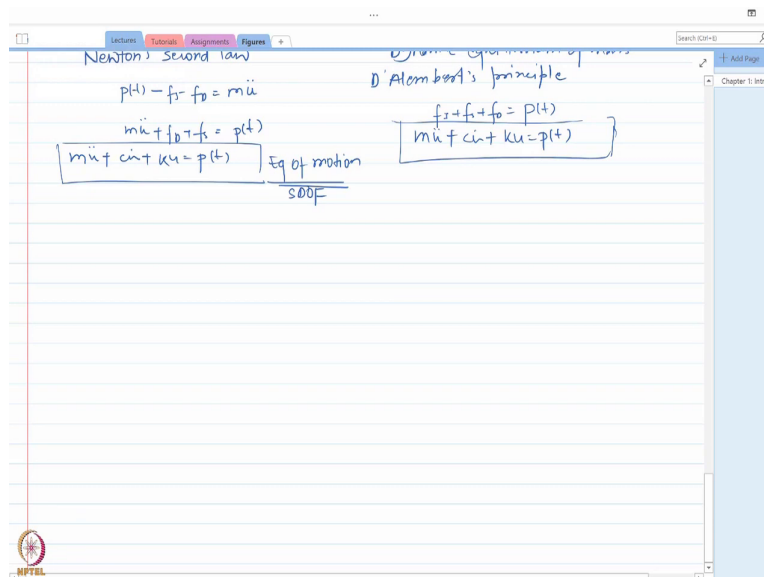 ...
Search (Ctrl+E)
Lectures Tutorials Assignments Figures +
+ Add Page
Chapter 1: Intr
Newton's second law
p(t) - fs - fD = mü
mü + fD + fs = p(t)
mü + cu̇ + ku = p(t)
Eq of motion
SDOF
D'Alembert's principle
fI + fs + fD = p(t)
mü + cu̇ + ku = p(t)
NPTEL